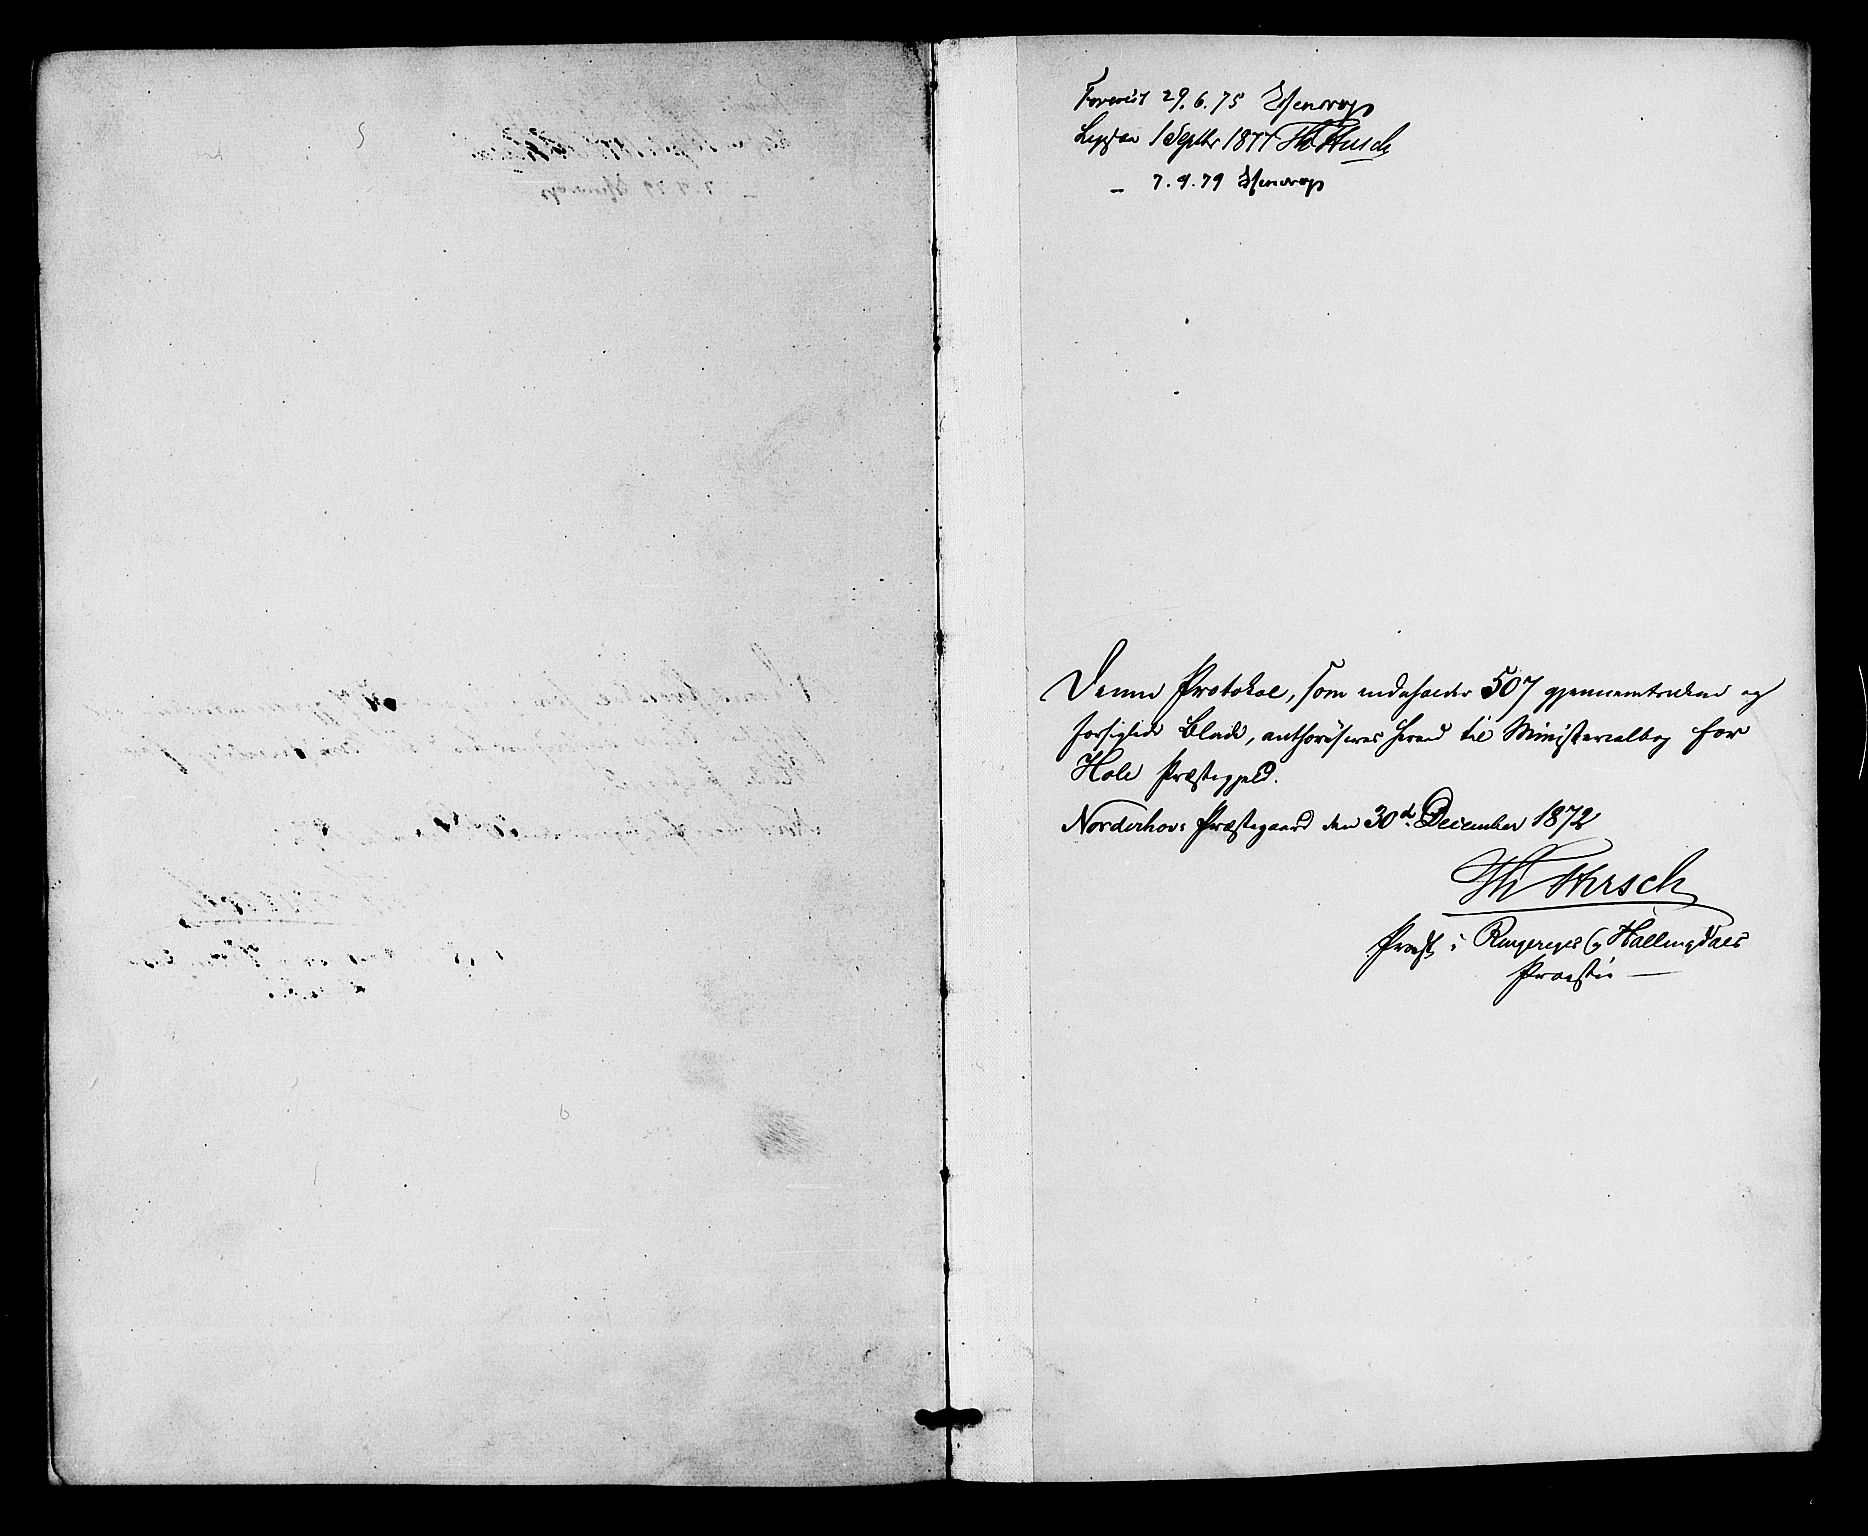 Forevist 29.6.75 Essendrop
Seet 1 Septbr 1877 Th. Hirsch
— 7.9.79 Essendrop
Denne Protokol, som indeholder 507 gjennemtrukne og
forsiglede Blade, authoriseres herved til Ministerialbog for
Hole Præstegjeld.
Norderhovs Præstegaard den 30d. December 1872
Th Hirsch
Provst i Ringeriges og Hallingdals
Provsti —